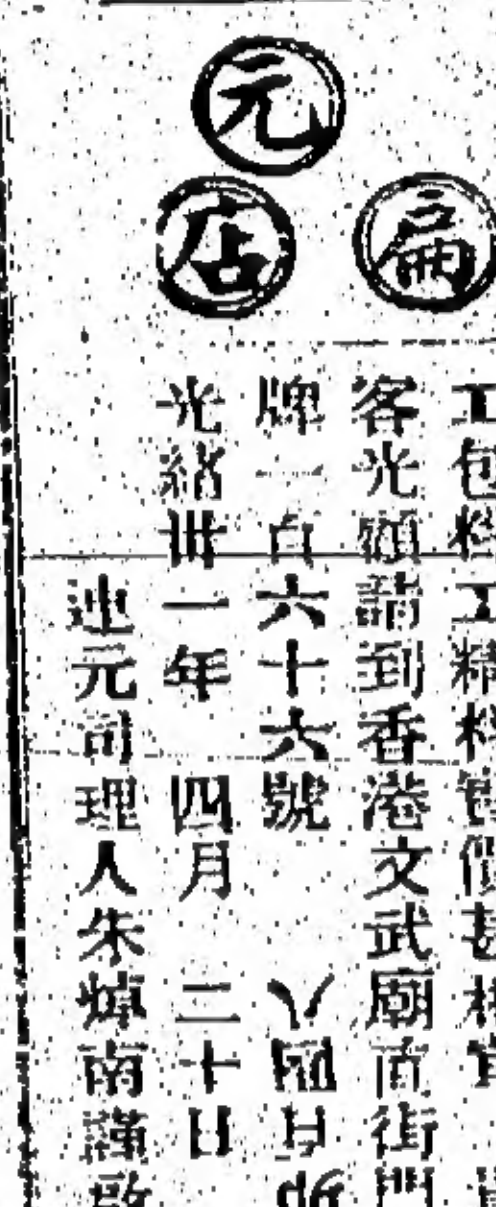 扁
元
店
工包料工精料實價甚相宜
客光顧請到香港文武廟直街門
牌一百六十六號
光緒卅一年 四月 二十日
連元司理人朱焯南謹啟